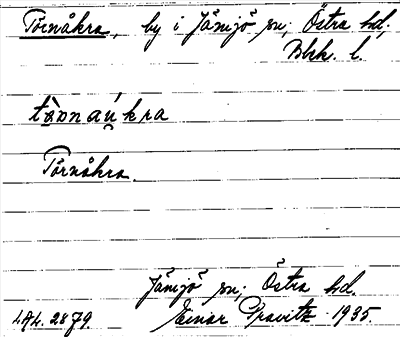 Törnåkra, by i Jämjö sn; Östra hd.
Blek. l.
tòₐnaúkra
Törnåkra.
Jämjö sn; Östra hd.
LAL. 2879. Einar Gravitz 1935